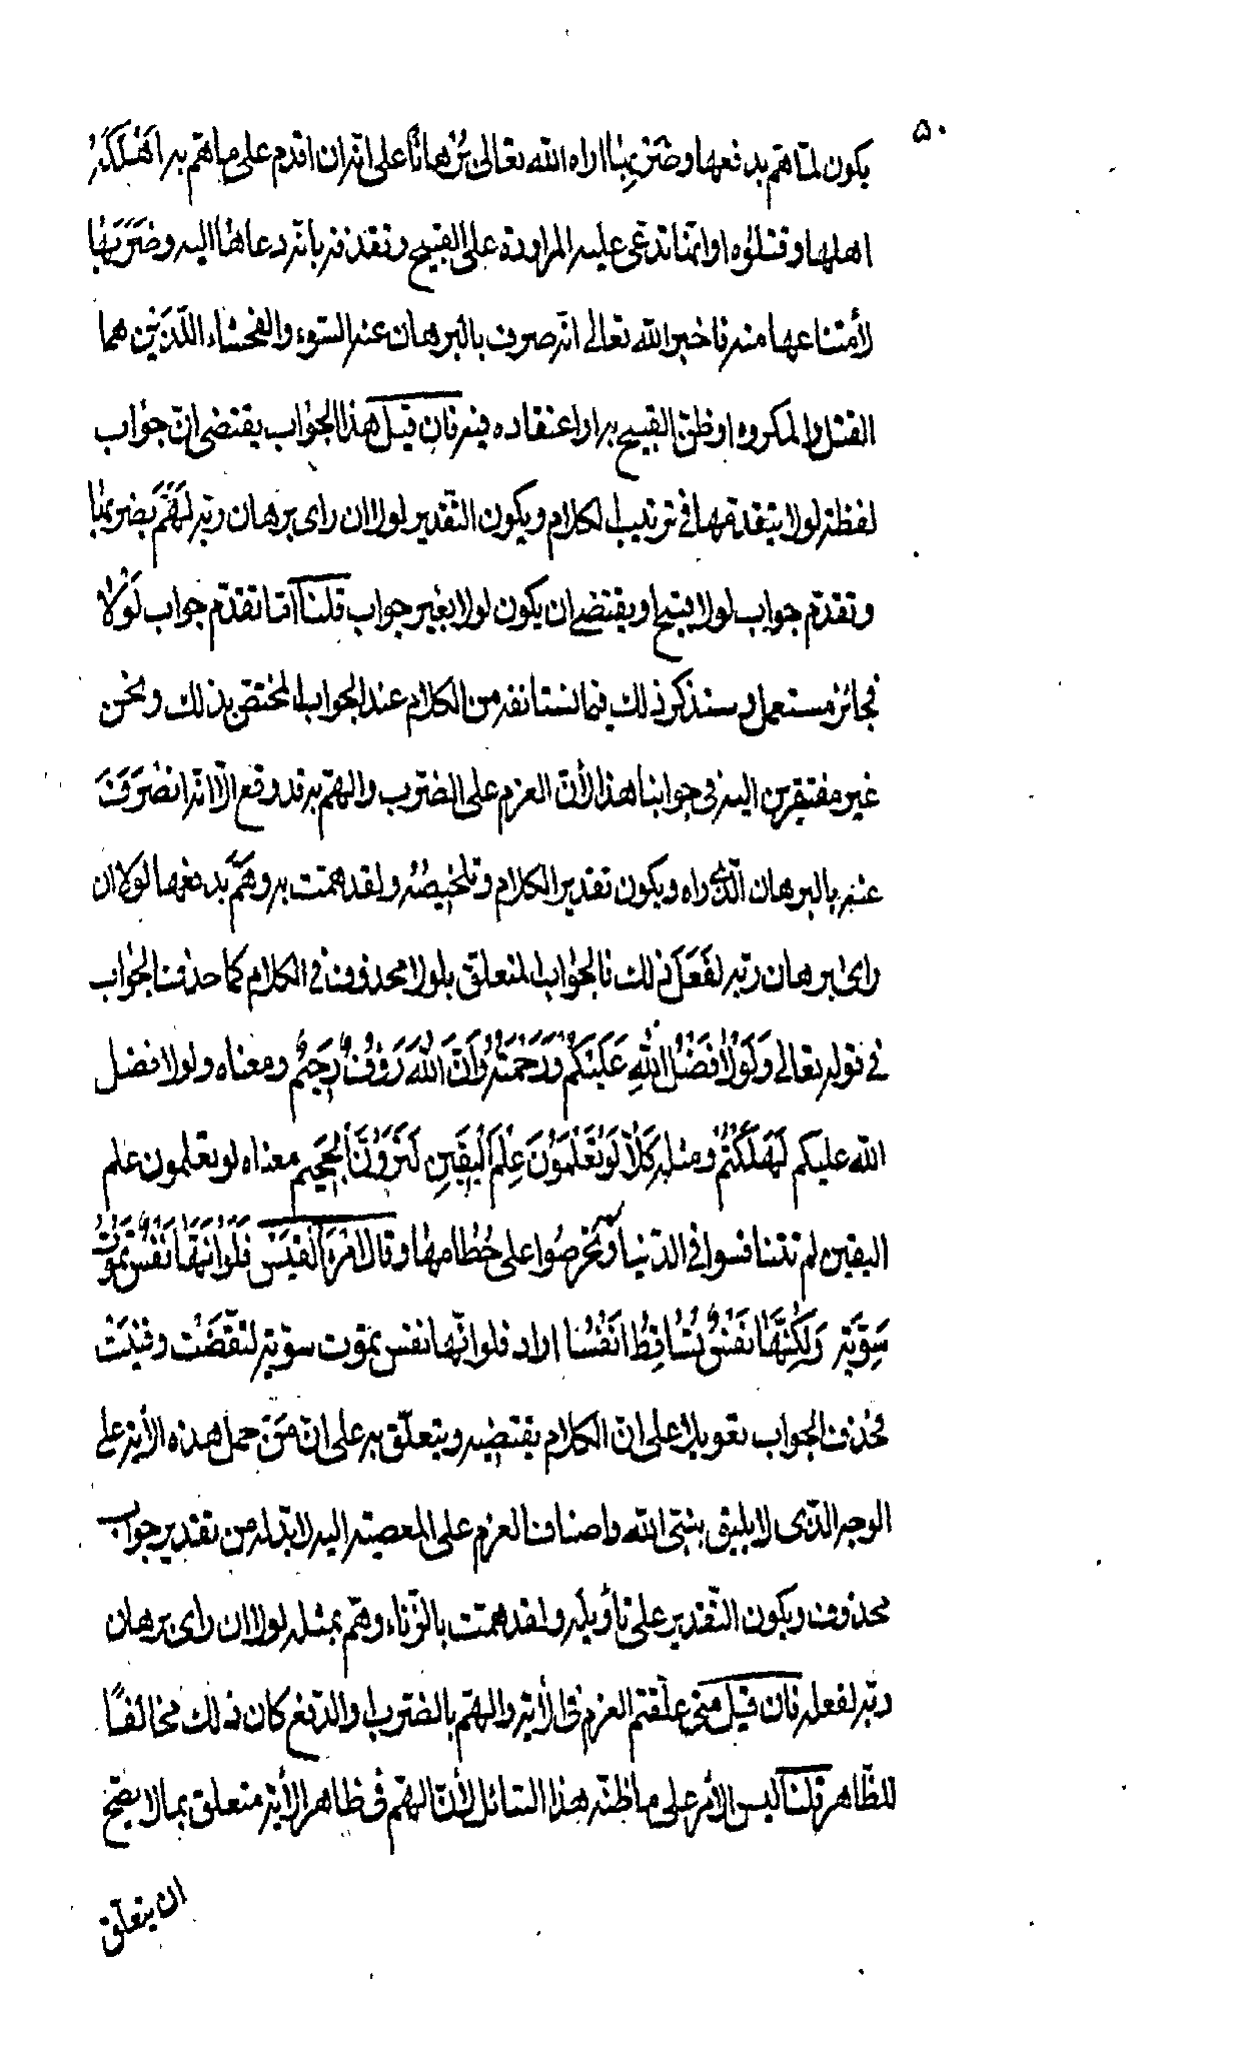 ۵۰
يكون لمّا همّ بدفعها وضربها اراه الله تعالى بُرْهانًا على انّه ان اقدم على ما همّ به اَهْلَكَهُ
اهلها وقتلوه او انّها تدّعى عليه المراودة على القبيح وتقذفه بانّه دعاها اليه وضَرَبَها
لأمتناعها منه فاخبر الله تعالى انّه صرف بالبرهان عنه السّوء والفحشاء اللّذَيْن هما
القتل والمكروه او ظنّ القبيح به او اعتقاده فيه فان قيل هذا الجواب يقتضى انّ جواب
لفظة لولا يتقدّمها فى ترتيب الكلام ويكون التّقدير لولا ان راى برهان ربّه لَهَمَّ بضربها
وتقدّم جواب لولا قبيح او يقتضى ان يكون لولا بغير جواب قلنا امّا تقدّم جواب لَوْلا
فجائز مستعمل وسنذكر ذلك فيما نستأنفه من الكلام عند الجواب المختصّ بذلك ونحن
غير مفتقرين اليه فى جوابنا هذا لأنّ العزم على الضّرب والهمّ به قد وقع الّا انّه انصَرَفَ
عنه بالبرهان الّذى راه ويكون تقدير الكلام وتلخيصُهُ ولقد همّت به وهَمَّ بدفعها لولا ان
راى برهان ربّه لفَعَلَ ذلك فالجواب المتعلّق بلولا محذوف فى الكلام كما حذف الجواب
فى قوله تعالى وَلَوْلا فَضْلُ اللهِ عَلَيْكُمْ وَرَحْمَتُهُ وَاَنَّ اللهَ رَؤُفٌ رَحيمٌ ومعناه ولولا فضل
الله عليكم لَهَلَكْتُمْ ومثله كَلّا لَوْ تَعْلَمُوْنَ عِلْمَ الْيَقينِ لَتَرَوُنَّ الْجَحيمَ معناه لو تعلمون علم
اليقين لم تتنافسوا فى الدّنيا وتحرصُوا على حُطامها وقال امْرَءُ الْقَيْسِ فَلَوْ اَنَّهَا نَفْسٌ تَمُوْتُ
سَوِيَّةً وَلكِنَّهَا نَفْسٌ تُسَاقِطُ اَنْفُسًا اراد فلو انّها نفس تموت سويّة لتقضّت وفنيَتْ
فحذف الجواب تعويلا على انّ الكلام يقتضيه ويتعلّق به على انّ مَنْ حمل هذه الأية على
الوجه الّذى لا يليق بنبىّ الله واضاف العزم على المعصية اليه لا بدّ له من تقدير جواب
محذوف ويكون التّقدير على تأويله ولقد همّت بالزّناء وهمّ بمثله لولا ان راى برهان
ربّه لفعله فان قيل متى علّقتم العزم فى الأية والهمّ بالضّرب او الدّفع كان ذلك مخالفًا
للظّاهر قلنا ليس الأمر على ما ظنّه هذا السّائل لأنّ الهمّ فى ظاهر الأية متعلق بما لا يصحّ
ان يتعلّق